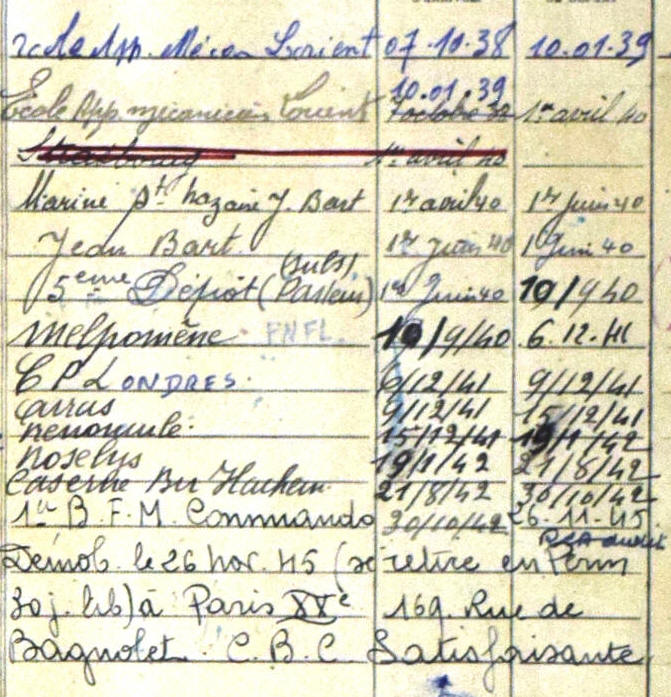 App. Mécan Lorient 07.10.38 10.01.39
10.01.39
École App mécanicien Lorient 7 octobre 1er avril 40
Strasbourg 1er avril 40
Marine St Nazaire J. Bart 1er avril 40 1er Juin 40
Jean Bart 1er Juin 40 1 Juin 40
5ème Dépôt (subs) (Pasteur) 1er Juin 40 10/9 40
Melpomène FNFL. 10/9/40 6.12.41
C P LONDRES 6/12/41 9/12/41
Arras 9/12/41 15/12/41
Renoncule 15/12/41 19/1/42
Roselys 19/1/42 21/8/42
Caserne Bir Hacheim 21/8/42 30/10/42
1er B. F. M. Commando 30/10/42 26-11-45
Démob. le 26 nov. 45 (se retire en Perm
30 j. lib) à Paris XXe 169. Rue de
Bagnolet. C. B. C Satisfaisante